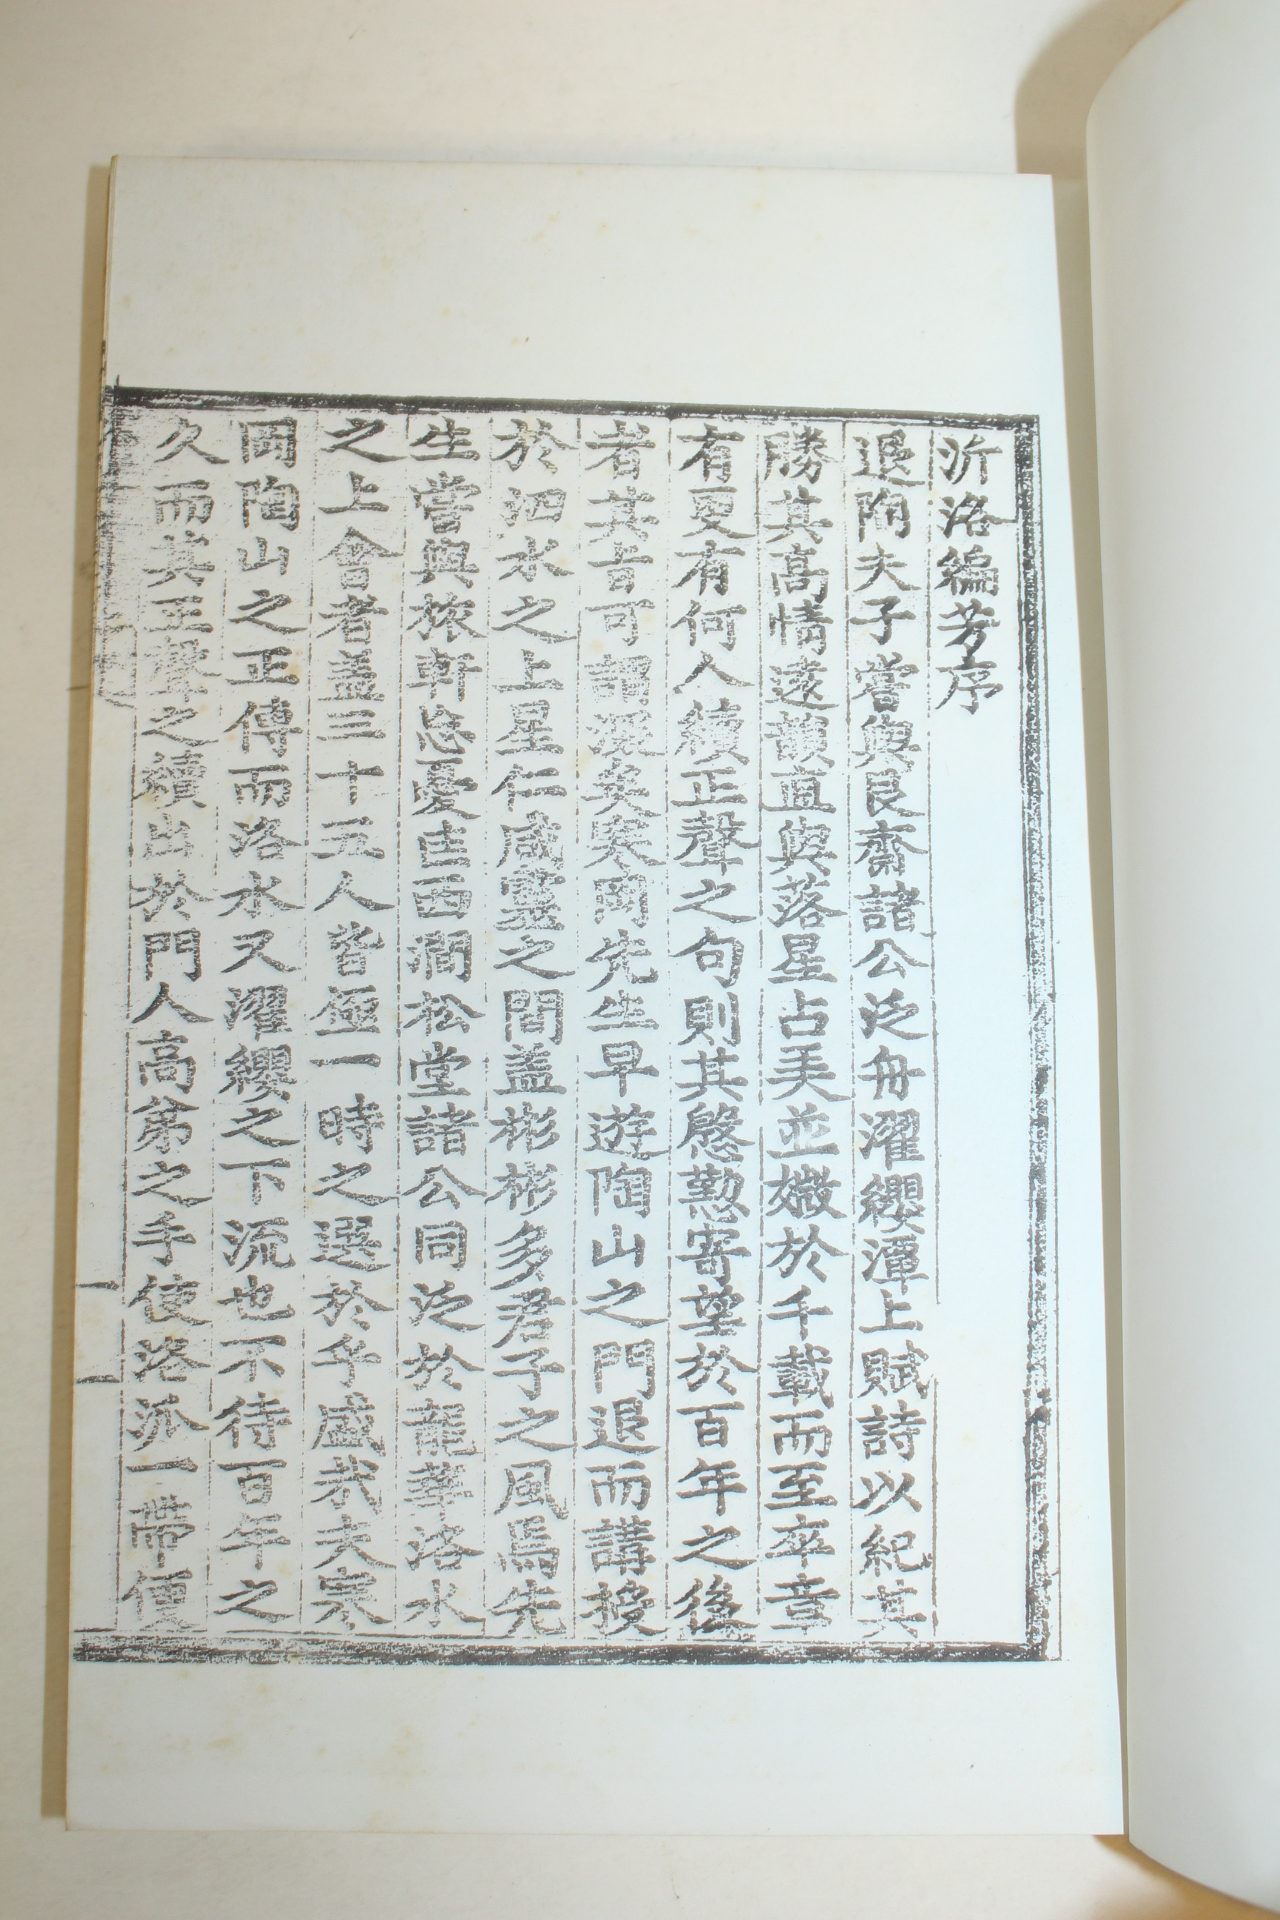 沂洛編芳序
退陶夫子嘗與艮齋諸公泛舟濯纓潭上賦詩以紀其
勝其高情遠韻直與落星占美並媺於千載而至卒章
有更有何人續正聲之句則其慇懃寄望於百年之後
者其旨可謂深矣寒岡先生早遊陶山之門退而講授
於泗水之上星仁咸靈之間盖彬彬多君子之風焉先
生嘗與旅軒忘憂呂西澗松堂諸公同泛於龍華洛水
之上會者盖三十五人皆極一時之選於乎盛哉夫寒
岡陶山之正傳而洛水又濯纓之下流也不待百年之
久而其正聲之續出於門人高弟之手使洛派一帶便